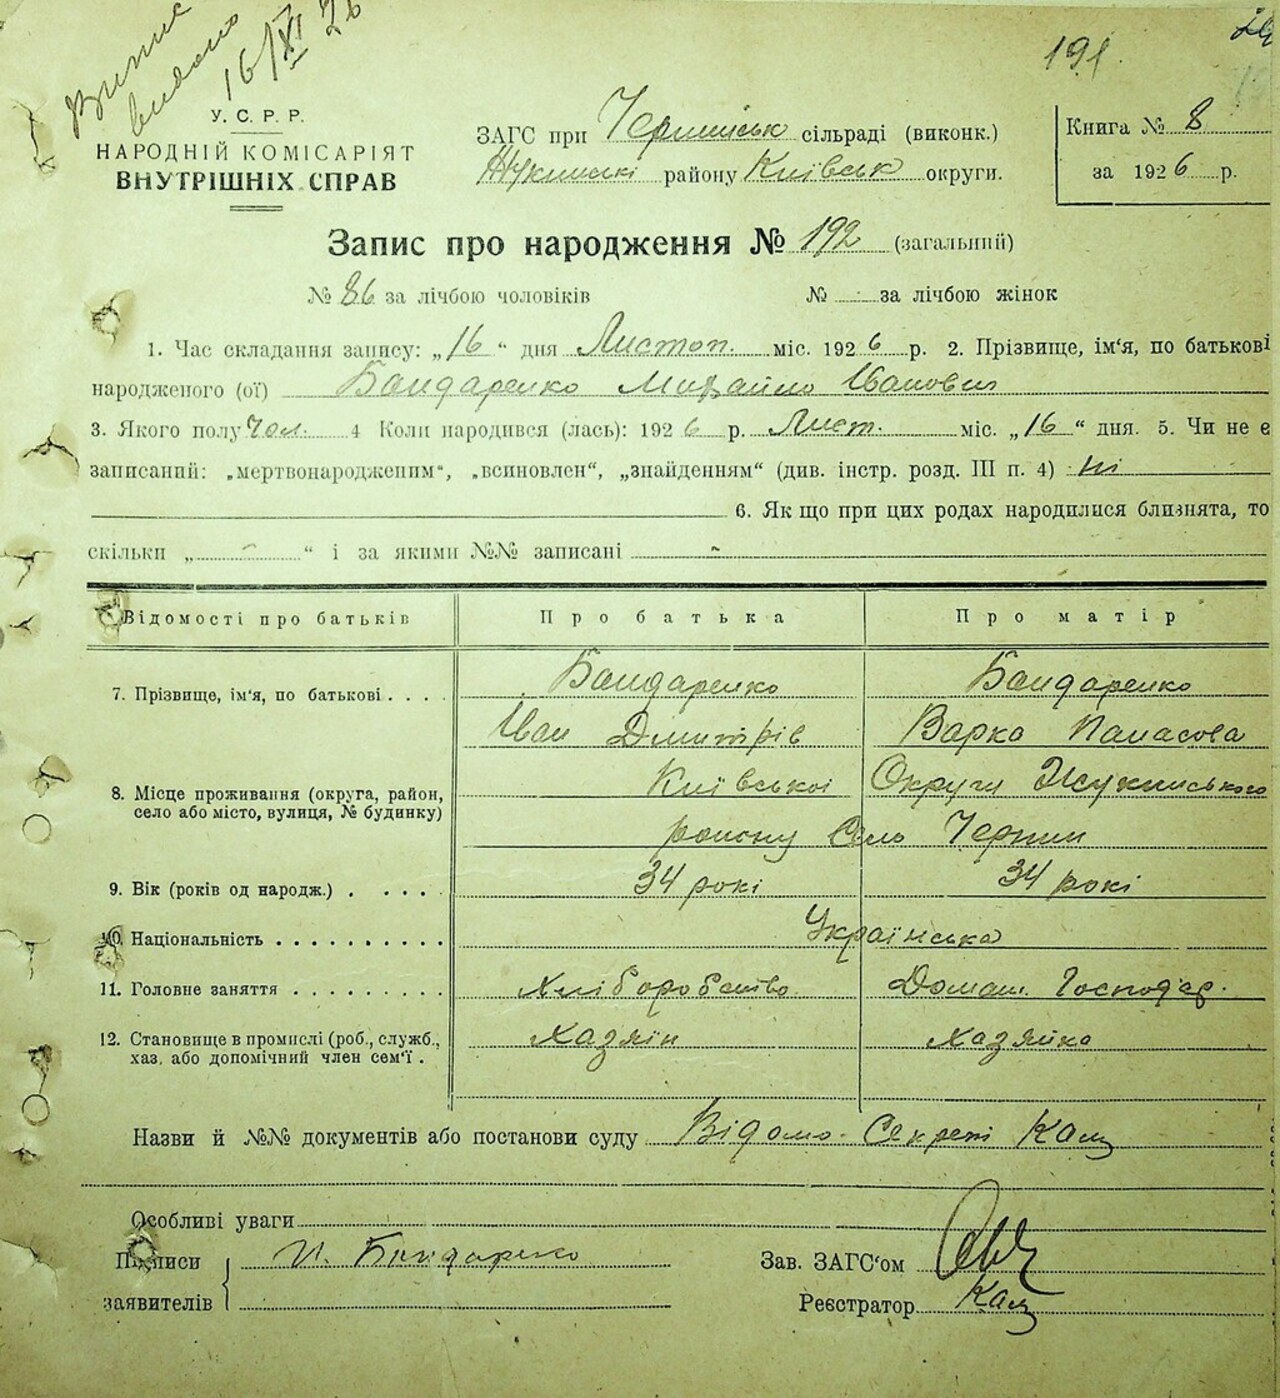 Випис
видано
16/XI 26
191.
У. С. Р. Р.
НАРОДНІЙ КОМІСАРІЯТ
ВНУТРІШНІХ СПРАВ
ЗАГС при Чернинськ сільраді (виконк.)
Жукинські району Київськ округи.
Книга № 8
за 1926 р.
Запис про народження № 192 (загальний)
№ 86 за лічбою чоловіків № - за лічбою жінок
1. Час складання запису: „16“ дня Листоп. міс. 1926 р. 2. Прізвище, ім'я, по батькові
народженого (ої) Бондаренко Михайло Іванович
3. Якого полу Чол. 4 Коли народився (лась): 1926 р. Лист. міс. „16“ дня. 5. Чи не є
записаний: „мертвонародженим“, „всиновлен“, „знайденням“ (див. інстр. розд. III п. 4) ні
6. Як що при цих родах народилися близнята, то
скільки „ - “ і за якими №№ записані -
Відомості про батьків Про батька Про матір
7. Прізвище, ім'я, по батькові . . . . Бондаренко Бондаренко
Іван Дмитрів Варка Панасова
8. Місце проживання (округа, район, село або місто, вулиця, № будинку) Київської Округи Жукинського
району Село Чернин
9. Вік (років од народж.) . . . . . 34 рокі 34 рокі
10. Національність . . . . . . . . . . Українська
11. Головне заняття . . . . . . . . . Хліборобство Домаш. Господар.
12. Становище в промислі (роб., служб., хаз. або допомічний член сем'ї . Хазяїн Хазяйка
Назви й №№ документів або постанови суду Відомо Секрет
Особливі уваги
Підписи заявителів И. Бондаренко
Зав. ЗАГС'ом
Реєстратор